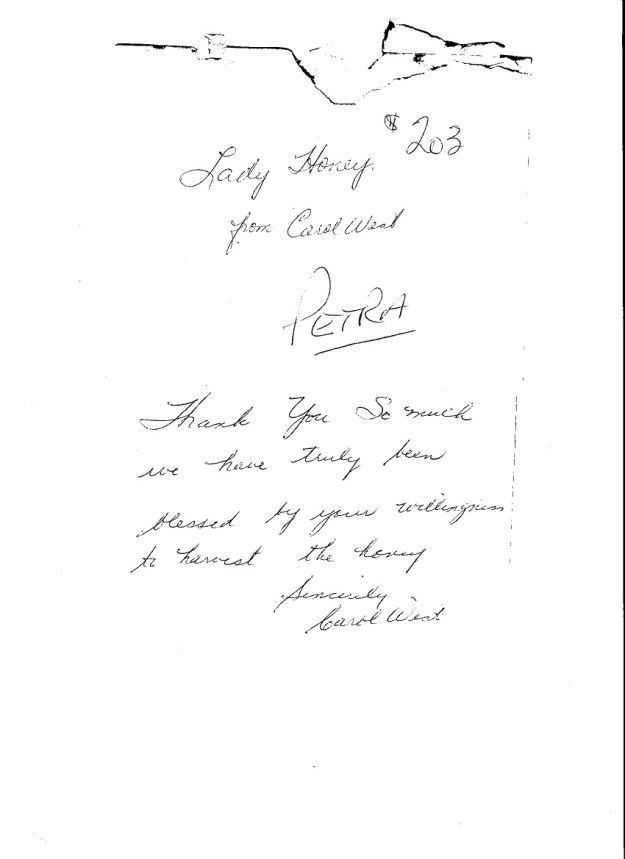 $203
Lady Honey.
from Carol West
PETRA
Thank You So much
we have truly been
blessed by your willingness
to harvest the honey
Sincerely
Carol West